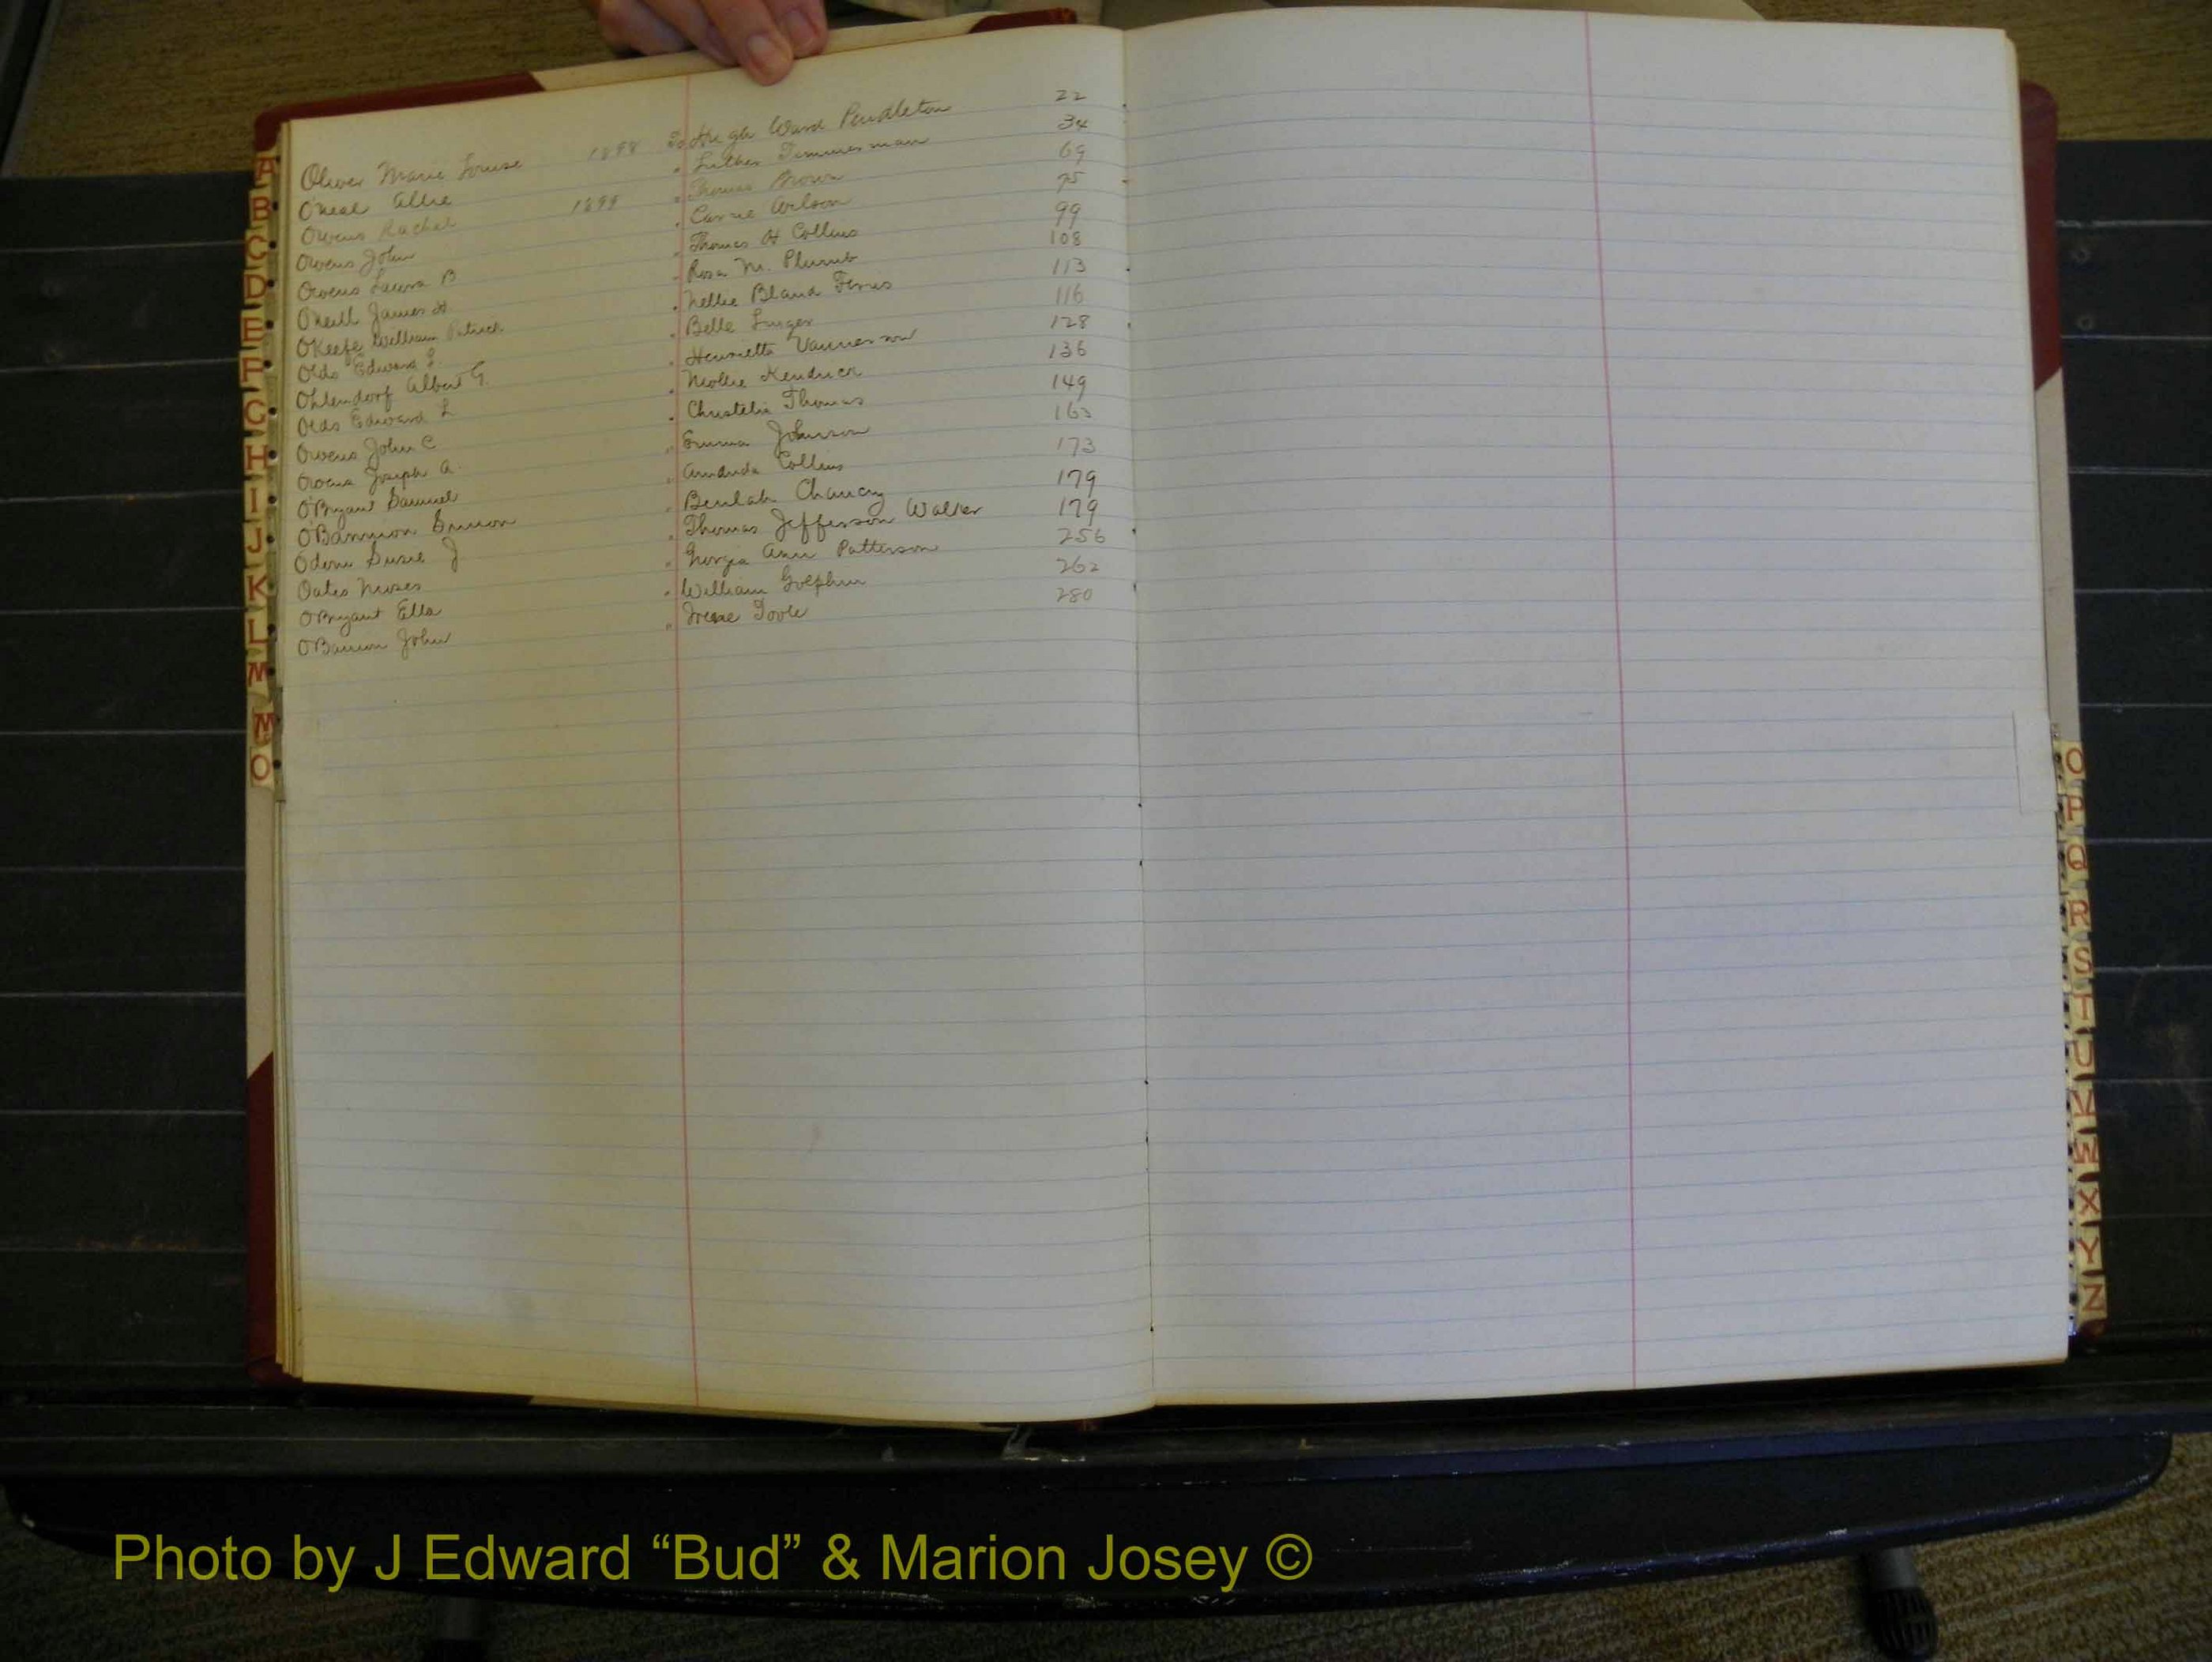 Oliver Marie Louise 1898 To Hugh Ward Pendleton 22
O'Neal Allie " Luther Timmerman 34
Owens Rachel 1899 " Thomas Brown 69
Owens John " Carrie Wilson 75
Owens Laura B " Thomas H Collins 99
O'Neill James H " Rosa M. Plumb 108
O'Keefe William Patrick " Nellie Bland Ferris 113
Olds Edward L. " Belle 116
Ohlendorf Albert G. " Henrietta 128
Olds Edward L " Mollie Kendrick 136
Owens John C " Thomas 149
Owens Joseph A. " Emma Johnson 163
O'Bryant Samuel " Amanda Collins 173
O'Bannion " Beulah Chancy 179
Odom Susie J " Thomas Jefferson Walker 179
Oates Moses " Georgia Ann Patterson 256
O'Bryant Ella " William Golphin 262
O'Banion John " Irene Toole 280
A
B
C
D
E
F
G
H
I
J
K
L
M
O
O
P
Q
R
S
T
U
V
W
X
Y
Z
Photo by J Edward “Bud” & Marion Josey ©